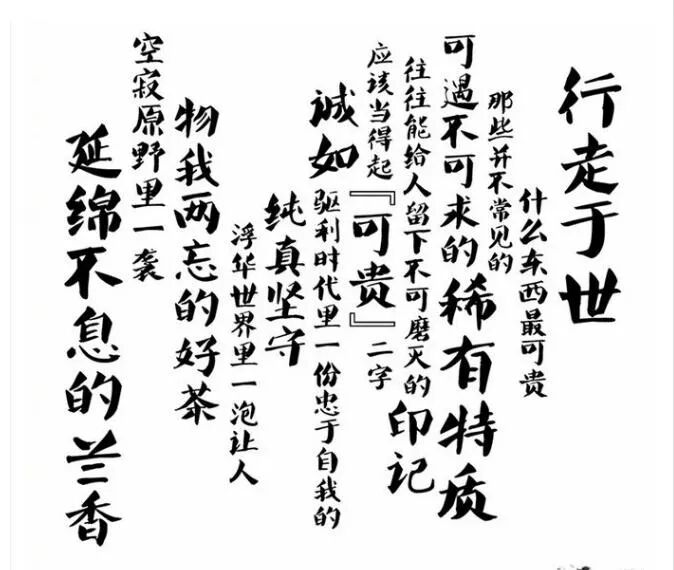 行走于世
什么东西最可贵
那些并不常见的
可遇不可求的稀有特质
往往能给人留下不可磨灭的印记
应该当得起『可贵』二字
诚如驱利时代里一份忠于自我的
纯真坚守
浮华世界里一泡让人
物我两忘的好茶
空寂原野里一袭
延绵不息的兰香